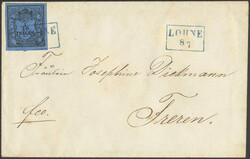 LOHNE
8/7
Fräulein Josephine Dickmann
fco.
Freren.